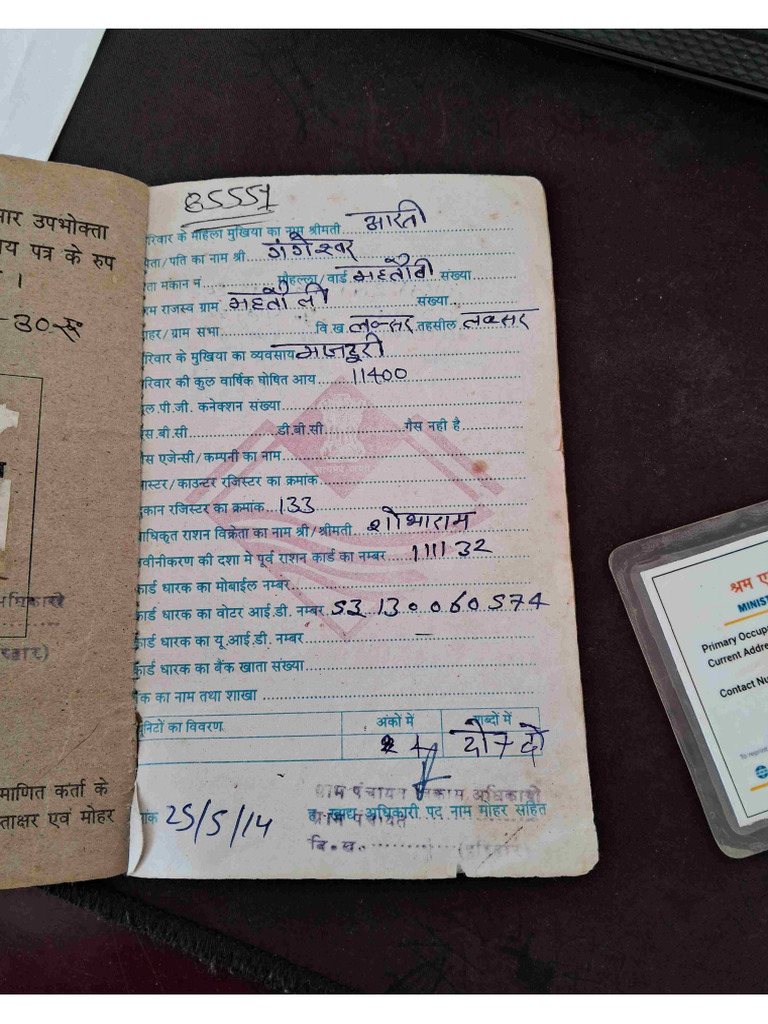 मार उपभोक्ता
य पत्र के रुप
।
-30-रु
माणित कर्ता के
ताक्षर एवं मोहर
85557
रिवार के महिला मुखिया का नाम श्रीमती आरती
पिता/पति का नाम श्री गंगेश्वर
ता मकान नं. मौहल्ला/वार्ड महतौली संख्या
राजस्व ग्राम महतौली संख्या
हर/ग्राम सभा वि.ख. लक्सर तहसील लक्सर
रिवार के मुखिया का व्यवसाय मजदूरी
रिवार की कुल वार्षिक घोषित आय 11400
ल.पी.जी. कनेक्शन संख्या
स.बी.सी. डी.बी.सी. गैस नही है
स एजेन्सी/कम्पनी का नाम
ास्टर/काउन्टर रजिस्टर का क्रमांक
कान रजिस्टर का क्रमांक 133
धिकृत राशन विक्रेता का नाम श्री/श्रीमती शोभाराम
वीनीकरण की दशा मे पूर्व राशन कार्ड का नम्बर 111132
कार्ड धारक का मोबाईल नम्बर
कार्ड धारक का वोटर आई.डी. नम्बर 53130060574
कार्ड धारक का यू.आई.डी. नम्बर -
कार्ड धारक का बैंक खाता संख्या
क का नाम तथा शाखा
निटों का विवरण अंकों में शब्दों में
25/5/14
ग्राम पंचायत विकास अधिकारी
अधिकारी पद नाम मोहर सहित
ग्राम पंचायत
वि.ख. (हरिद्वार)
श्रम ए
MINIST
Primary Occup
Current Addre
Contact Nu